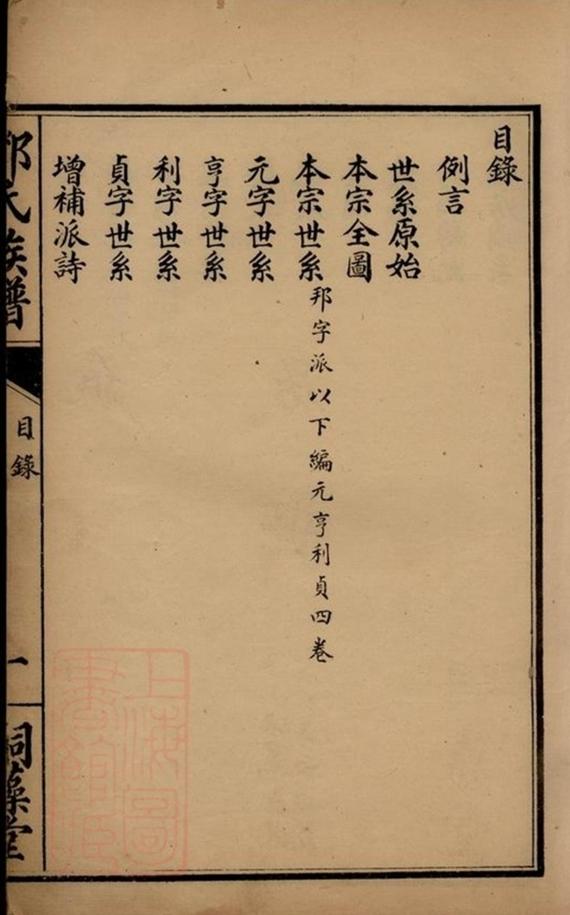 目錄
例言
世系原始
本宗全圖
本宗世系邦字派以下編元亨利貞四卷
元字世系
亨字世系
利字世系
貞字世系
增補派詩
氏族譜
目錄
一
上海圖
書館藏